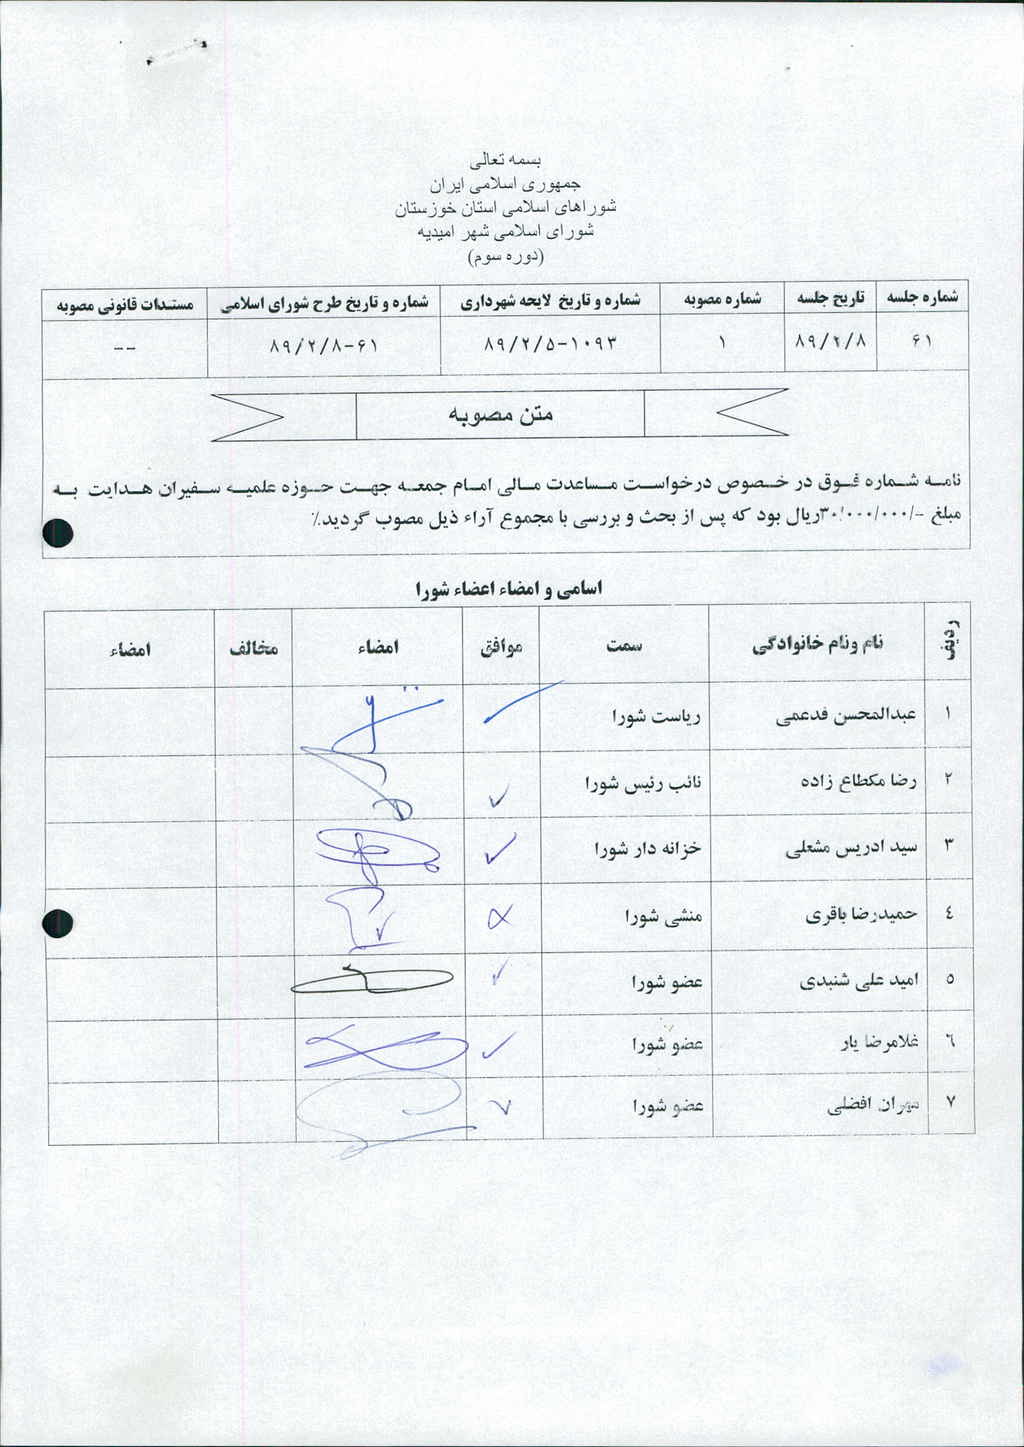 بسمه تعالی
جمهوری اسلامی ایران
شوراهای اسلامی استان خوزستان
شورای اسلامی شهر امیدیه
(دوره سوم)
شماره جلسه تاریخ جلسه شماره مصوبه شماره و تاریخ لایحه شهرداری شماره و تاریخ طرح شورای اسلامی مستندات قانونی مصوبه
۶۱ ۸۹/۲/۸ ۱ ۸۹/۲/۵-۱۰۹۳ ۸۹/۲/۸-۶۱ --
متن مصوبه
نامه شماره فوق در خصوص درخواست مساعدت مالی امام جمعه جهت حوزه علمیه سفیران هدایت به
مبلغ -/۳۰/۰۰۰/۰۰۰ریال بود که پس از بحث و بررسی با مجموع آراء ذیل مصوب گردید./
اسامی و امضاء اعضاء شورا
ردیف نام ونام خانوادگی سمت موافق امضاء مخالف امضاء
۱ عبدالمحسن فدعمی ریاست شورا
۲ رضا مکطاع زاده نائب رئیس شورا
۳ سید ادریس مشعلی خزانه دار شورا
٤ حمیدرضا باقری منشی شورا
۵ امید علی شنبدی عضو شورا
٦ غلامرضا یار عضو شورا
۷ مهران افضلی عضو شورا